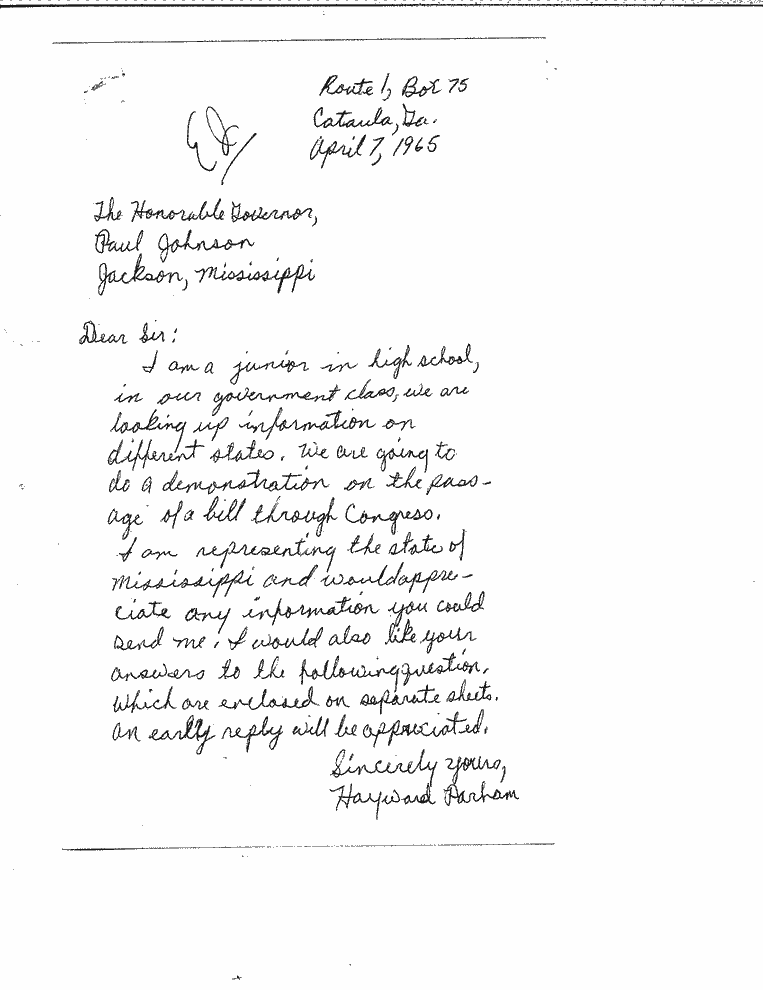 Route 1, Box 75
Cataula, Ga.
April 7, 1965
The Honorable Governor,
Paul Johnson
Jackson, Mississippi
Dear Sir:
I am a junior in high school,
in our government class, we are
looking up information on
different states. We are going to
do a demonstration on the pass-
age of a bill through Congress.
I am representing the state of
Mississippi and would appre-
ciate any information you could
send me. I would also like your
answers to the following question.
Which are enclosed on separate sheets.
An early reply will be appreciated.
Sincerely yours,
Hayward Parham